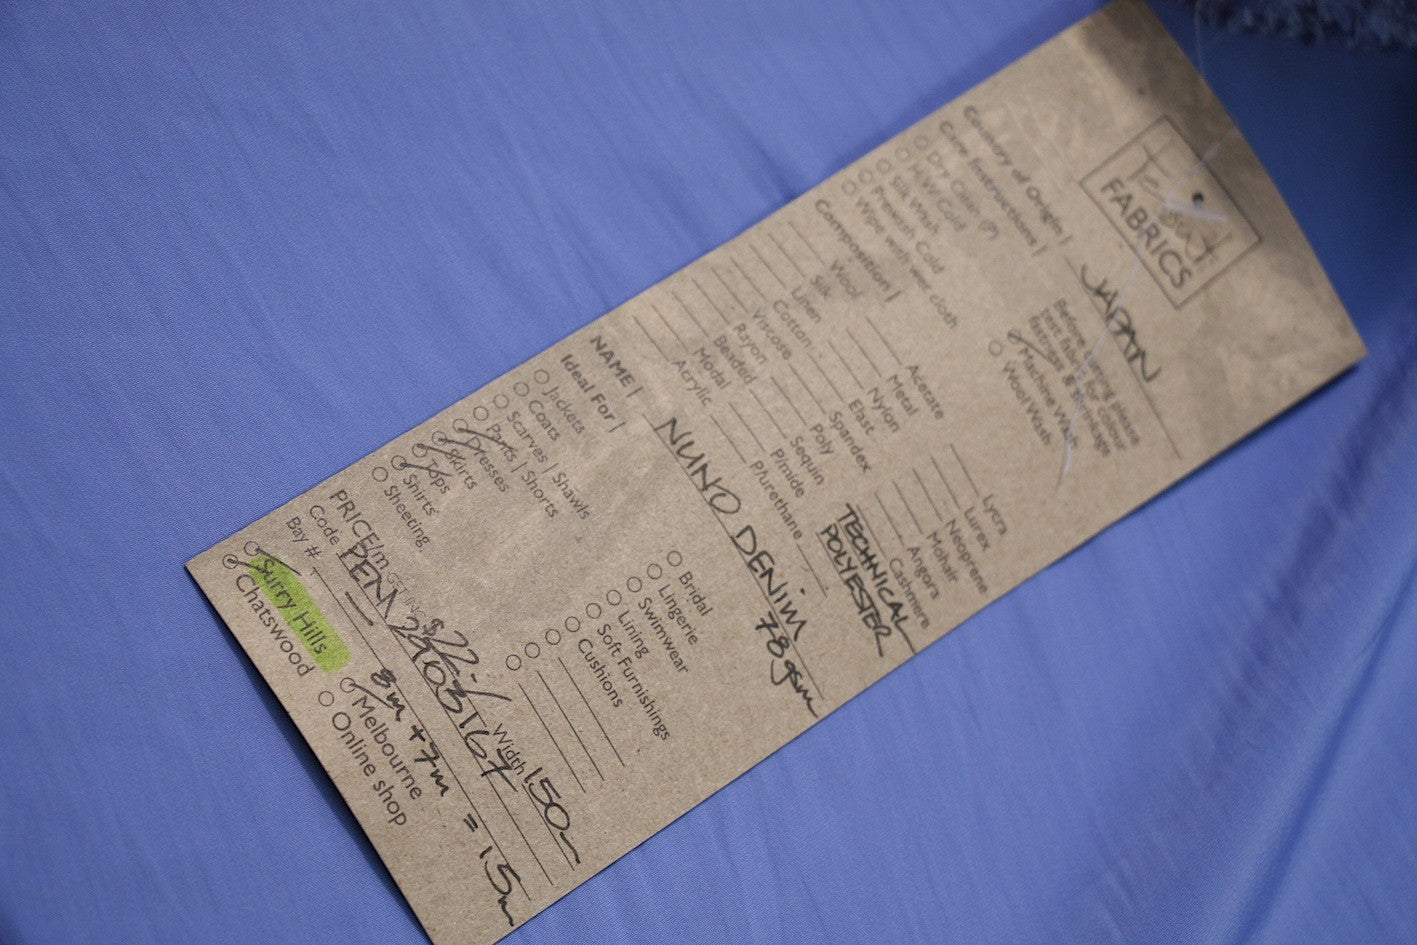 FABRICS
Country of Origin | JAPAN
Care Instructions |
Dry Clean (P)
H/W Cold
Silk Wish
Prewash Cold
Wipe with wet cloth
Before
test fabric for colour
fastness & shrinkage
Machine Wash
Wool Wash
Composition |
Wool
Silk
Linen
Cotton
Viscose
Rayon
Beaded
Modal
Acrylic
Acetate
Metal
Nylon
Elast
Spandex
Poly
Sequin
P/mide
P/urethane
Lycra
Lurex
Neoprene
Mohair
Angora
Cashmere
TECHNICAL
POLYESTER
NAME | NUNO DENIM 78gsm
Ideal For |
Jackets
Coats
Scarves | Shawls
Pants | Shorts
Dresses
Skirts
Tops
Shirts
Sheeting
Bridal
Lingerie
Swimwear
Lining
Soft Furnishings
Cushions
PRICE/m $22.- Width 150
Code PENN2903167
Bay # 8m + 7m = 15m
Surry Hills
Chatswood
Melbourne
Online shop